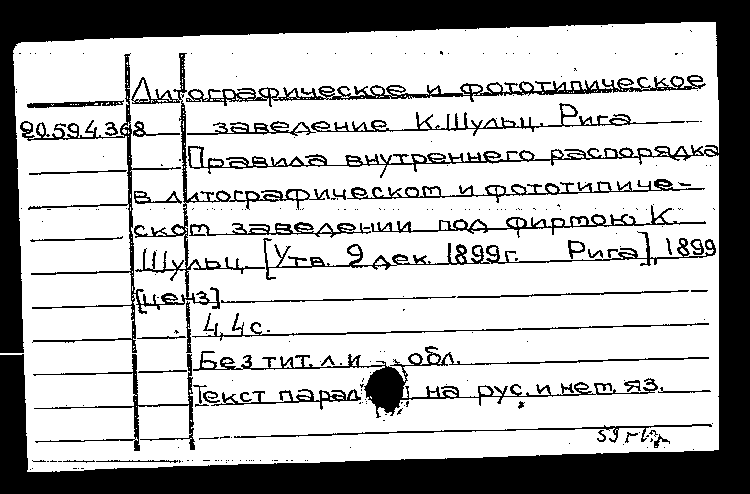 Литографическое и фототипическое
20.59.4.368 заведение К. Шульц. Рига
Правила внутреннего распорядка
в литографическом и фототипиче-
ском заведении под фирмою К.
Шульц. [Утв. 9 дек. 1899г. Рига], 1899
[ценз].
4, 4 с.
Без тит. л. и обл.
Текст парал на рус. и нем. яз.